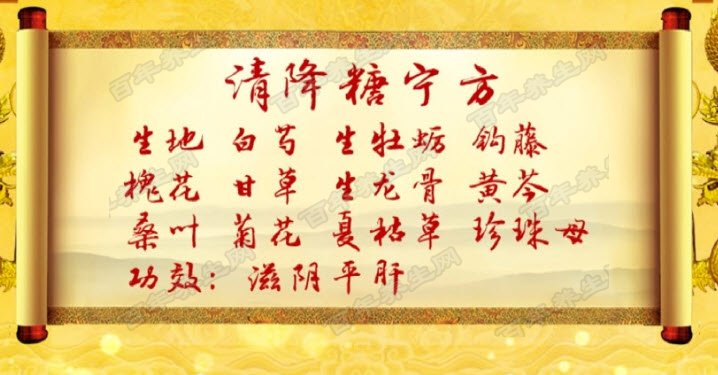 清降糖宁方
生地 白芍 生牡蛎 钩藤
槐花 甘草 生龙骨 黄芩
桑叶 菊花 夏枯草 珍珠母
功效：滋阴平肝
百年养生网
百年养生网
百年养生网
百年养生网
百年养生网